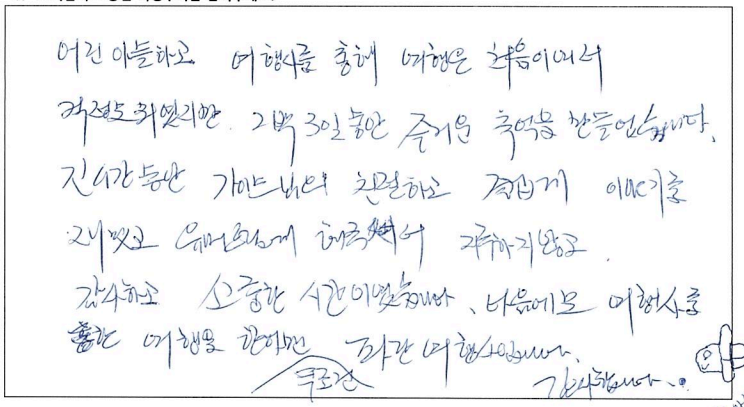 어린 아들하고 여행사를 통해 여행은 처음이여서
걱정도 되였지만. 2박 3일동안 즐거운 추억을 만들었습니다.
긴시간동안 가이드님의 친절하고 즐겁게 이야기를
재밌고 유머스럽게 해주셔서 지루하지않고
감사하고 소중한 시간이였습니다. 다음에도 여행사를
통한 여행을 한다면 파란여행사입니다.
무조건
감사합니다..